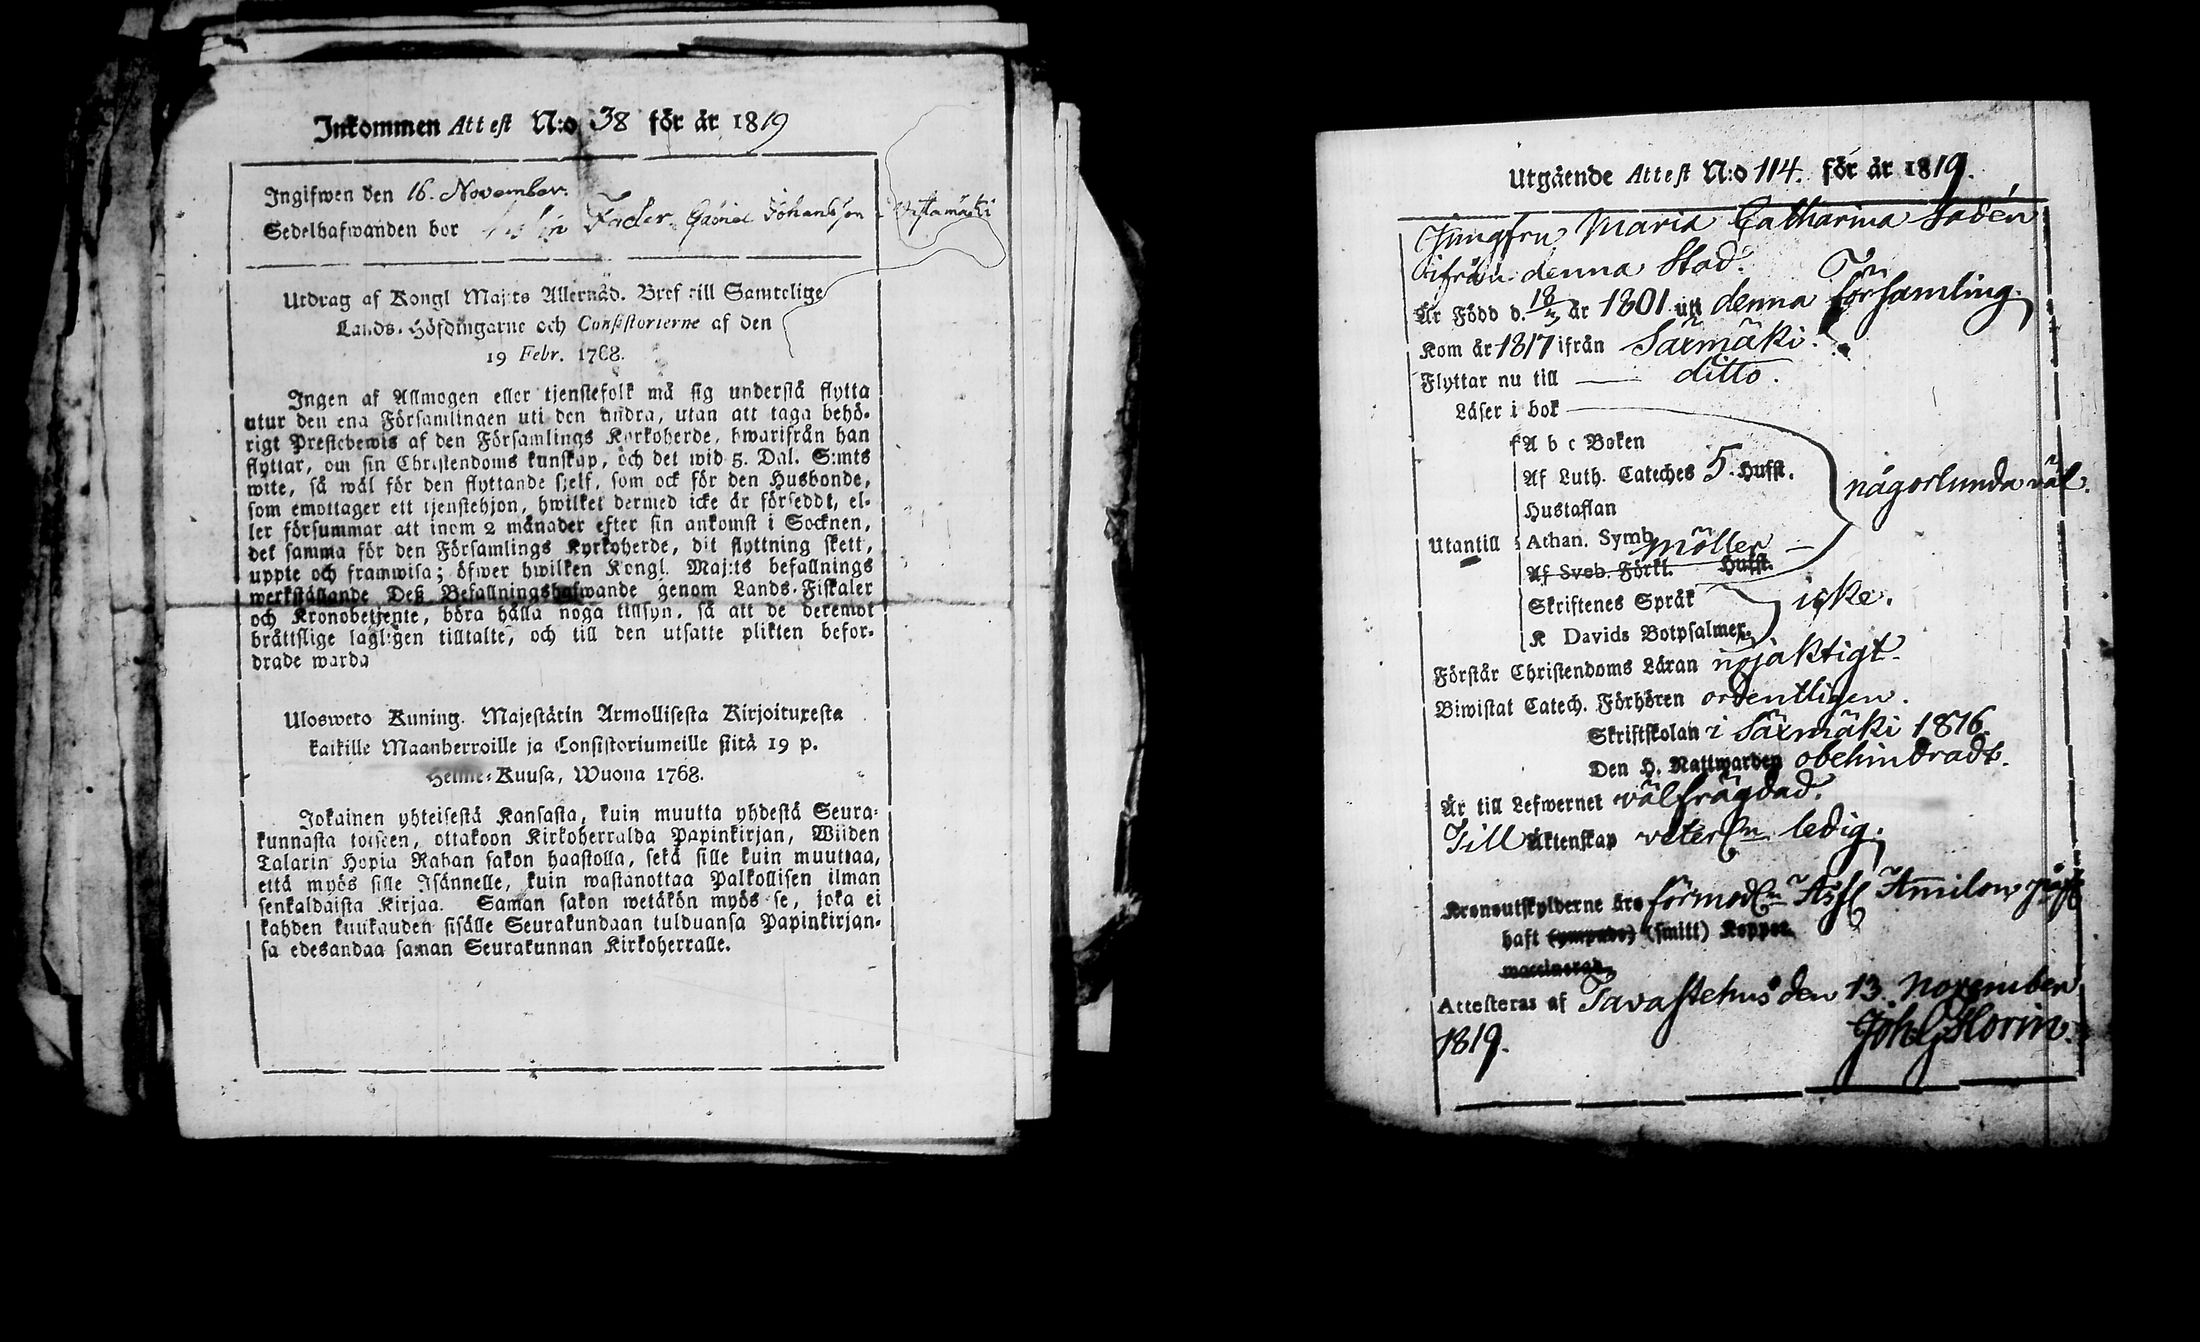 Inkommen Attest N:o 38 för år 1819
Ingifwen den 16. November.
Sedelhafwanden bor Fader Gabriel Johansson i Wistamäki
Utdrag af Kongl Maj:ts Allernåd. Bref till Samtelige
Lands-Höfdingarne och Consistorierne af den
19 Febr. 1768.
Ingen af Allmogen eller tjenstefolk må sig understå flytta
utur den ena Församlingen uti den andra, utan att taga behö-
rigt Prestebewis af den Församlings Kyrkoherde, hwarifrån han
flyttar, om sin Christendoms kunskap, och det wid 5. Dal. S:mts
wite, så wäl för den flyttande sjelf, som ock för den Husbonde,
som emottager ett tjenstehjon, hwilket dermed icke är försedt, el-
ler försummar att inom 2 månader efter sin ankomst i Socknen,
det samma för den Församlings Kyrkoherde, dit flyttning skett,
uppte och framwisa; öfwer hwilken Kongl. Maj:ts befallnings
werkställande Deß Befallningshafwande genom Lands-Fiskaler
och Kronobetjente, böra hålla noga tillsyn, så att de deremot
bråttslige lagligen tilltalte, och till den utsatte plikten befor-
drade warda
Ulosweto Kuning. Majestätin Armollisesta Kirjoituxesta
kaikille Maanherroille ja Consistoriumeille siitä 19 p.
Helme-Kuusa, Wuona 1768.
Jokainen yhteisestä Kansasta, kuin muutta yhdestä Seura-
kunnasta toiseen, ottakoon Kirkoherralda Papinkirjan, Wiiden
Talarin Hopia Rahan sakon haastolla, sekä sille kuin muuttaa,
että myös sille Isännelle, kuin wastanottaa Palkollisen ilman
senkaldaista Kirjaa. Saman sakon wetäkön myös se, joka ei
kahden kuukauden sisälle Seurakundaan tulduansa Papinkirjan-
sa edesandaa saman Seurakunnan Kirkoherralle.
Utgående Attest N:o 114. för år 1819.
Jungfru Maria Catharina Sadén
ifrån denna Stad.
Är Född d. 18/3 år 1801 uti denna Församling.
Kom år 1817 ifrån Säxmäki.
Flyttar nu till — ditto.
Läser i bok
A b c Boken
Af Luth. Cateches 5. Hufst.
någorlunda väl.
Hustaflan
Utantill Athan. Symb.
Möller —
Af Sveb. Förkl. Hufst.
Skriftenes Språk
icke.
K Davids Botpsalmer
Förstår Christendoms Läran nöjaktigt.
Biwistat Catech. Förhören ordentligen.
Skriftskolan i Säxmäki 1816.
Den H. Nattwarden obehindradt.
Är till Lefwernet välfrägdad.
Till Äktenskap veterl:n ledig.
Kronoutskylderne äro förmodl:n
haft (ympade) (smitt) Koppor
waccinerad
Attesteras af Tavastehus den 13 November
1819.
Joh. G. Florin.